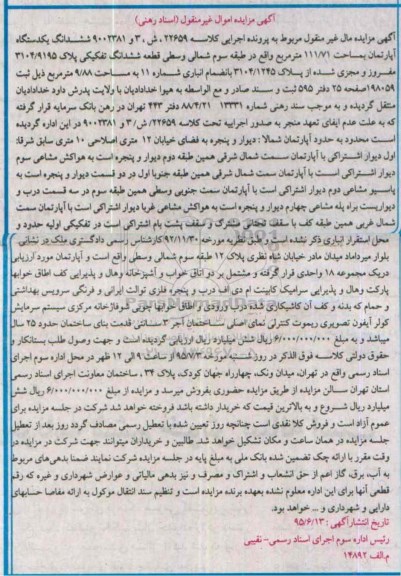 آگهی مزایده اموال غیرمنقول (اسناد رهنی)
آگهی مزایده مال غیر منقول مربوط به پرونده اجرایی کلاسه ۲۲۶۵۹، ش، ۳ و ۹۰۰۲۳۸۱ ششدانگ یکدستگاه
آپارتمان بمساحت ۱۱۱/۷۱ مترمربع واقع در طبقه سوم شمالی وسطی قطعه ششدانگ تفکیکی پلاک ۳۱۰۴/۹۱۹۵
مفروز و مجزی شده از پلاک ۳۱۰۴/۱۲۴۵ بانضمام انباری شماره ۱۱ به مساحت ۹/۸۸ مترمربع ذیل ثبت
۱۹۸۰۵۹ صفحه ۲۵ دفتر ۵۹۵ ثبت و سند صادر و مع الواسطه به هیوا خدادادیان با ولایت پدرش داود خدادادیان
منتقل گردیده و به موجب سند رهنی شماره ۱۳۳۳۱ ۸۸/۴/۲۱ دفتر ۴۴۳ تهران در رهن بانک سرمایه قرار گرفته
که به علت عدم ایفای تعهد متجر به صدور اجراییه تحت کلاسه ۲۲۶۵۹/ ش/ ۳ و ۹۰۰۲۳۸۱ در این اداره گردیده
است محدود به حدود آپارتمان شمالا: دیوار و پنجره به فضای خیابان ۱۲ متری اصلاحی ۱۰ متری سابق شرقا:
اول دیوار اشتراکی با آپارتمان سمت شمال شرقی همین طبقه دوم دیوار و پنجره است به هواکش مشاعی سوم
دیوار اشتراکی است با آپارتمان سمت شمال شرقی همین طبقه جنوبا اول در دو قسمت دیوار و پنجره است به
پاسیو مشاعی دوم دیوار اشتراکی است با آپارتمان سمت جنوبی وسطی همین طبقه سوم در سه قسمت درب و
دیواریست براه پله مشاعی چهارم دیوار و پنجره است به هواکش مشاعی غربا دیوار اشتراکی است با آپارتمان سمت
شمال غربی همین طبقه کف با سقف تحتانی مشترک و سقف پشت بام اشتراکی است در تفکیکی اولیه حدود و
محل استقرار انباری ذکر نشده است و طبق نظریه مورخه ۹۲/۱۱/۳۰ کارشناس رسمی دادگستری ملک در نشانی
بلوار میرداماد میدان مادر خیابان شاه نظری پلاک ۱۲ طبقه سوم شمالی وسطی واقع است و آپارتمان مورد ارزیابی
دریک مجموعه ۱۸ واحدی قرار گرفته و مشتمل بر دو اتاق خواب و آشپزخانه وهال و پذیرایی کف اطاق خوابها
پارکت وهال و پذیرایی سرامیک کابینت ام دی اف درب و پنجره فلزی توالت ایرانی و فرنگی سرویس بهداشتی
و حمام که بدنه و کف آن کاشیکاری شده درب ورودی و اطاق خوابها چوبی شوفاژخانه مرکزی سیستم سرمایش
کولر آیفون تصویری ریموت کنترلی نمای اصلی ساختمان آجر ۳ سانتی قدمت بنای ساختمان حدود ۲۵ سال
میباشد و به مبلغ ۶/۰۰۰/۰۰۰/۰۰۰ ریال شش میلیارد ریال ارزیابی گردیده است و جهت وصول طلب بستانکار و
حقوق دولتی کلاسه فوق الذکر در روز شنبه مورخه ۹۵/۷/۳ از ساعت ۹ الی ۱۲ ظهر در محل اداره سوم اجرای
اسناد رسمی واقع در تهران، میدان ونک، چهارراه جهان کودک، پلاک ۳۴، ساختمان معاونت اجرای اسناد رسمی
استان تهران سالن مزایده از طریق مزایده حضوری بفروش میرسد و مزایده از مبلغ ۶/۰۰۰/۰۰۰/۰۰۰ ریال شش
میلیارد ریال شروع و به بالاترین قیمت که خریدار داشته باشد فروخته خواهد شد شرکت در جلسه مزایده برای
عموم آزاد است و فروش کلا نقدی است چنانچه روز تعیین شده با تعطیل رسمی مصادف گردد روز بعد از تعطیل
جلسه مزایده در همان ساعت و مکان تشکیل خواهد شد. طالبین و خریداران میتوانند جهت شرکت در مزایده در
وقت مقرر با ارائه چک تضمین شده بانک ملی به مبلغ پایه در جلسه مزایده شرکت نمایند ضمنا بدهی‌های مربوط
به آب، برق، گاز اعم از حق انشعاب و اشتراک و مصرف و نیز بدهی مالیاتی و عوارض شهرداری و غیره که رقم
قطعی آنها برای این اداره معلوم نشده بعهده برنده مزایده است و تنظیم سند انتقال موکول به ارائه مفاصا حسابهای
دارایی و شهرداری و ... خواهد بود.
تاریخ انتشار آگهی: ۹۵/۶/۱۳
رئیس اداره سوم اجرای اسناد رسمی- نقیبی
م.الف ۱۴۸۹۲